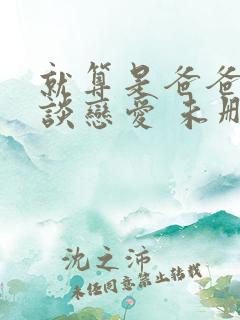 就算是爸爸
談戀愛 未刪
沈之沛
未经同意禁止转载